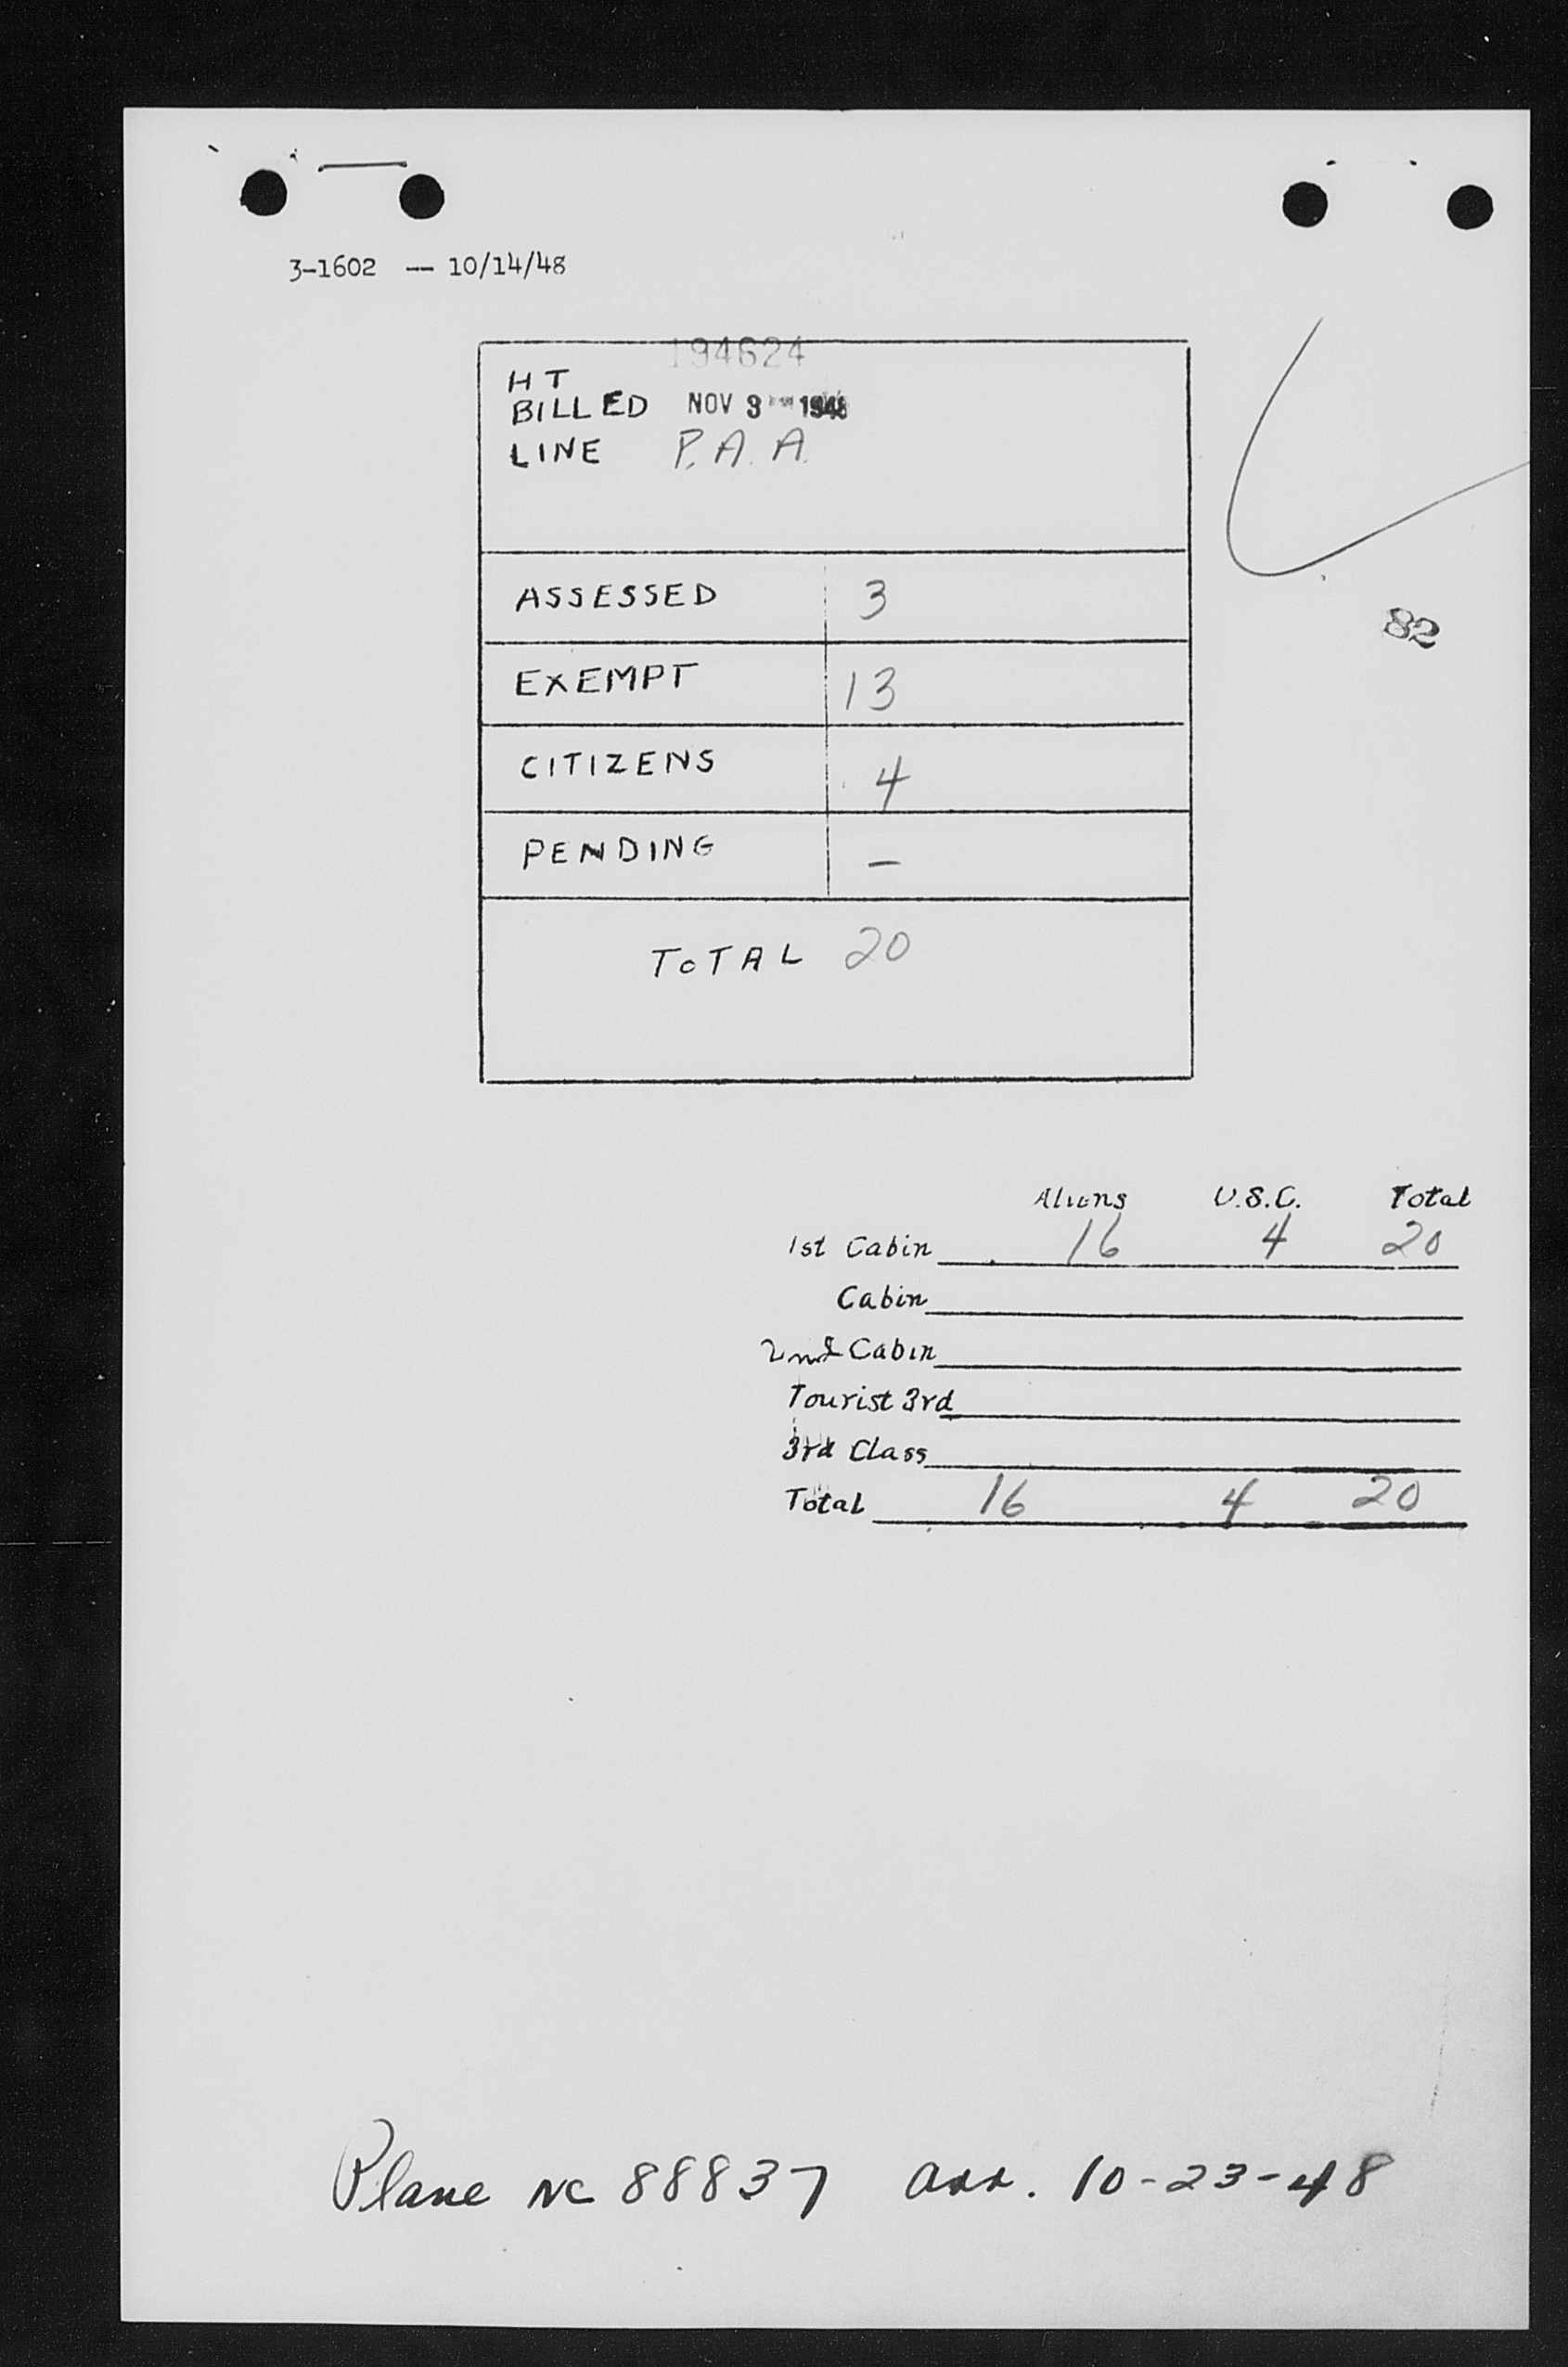 3-1602 -- 10/14/48
194624
HT
BILLED NOV 3 1948
LINE P. A. A.
82
ASSESSED 3
EXEMPT 13
CITIZENS 4
PENDING –
TOTAL 20
Aliens U.S.C. Total
1st Cabin 16 4 20
Cabin
2nd Cabin
Tourist 3rd
3rd Class
Total 16 4 20
Plane NC 88837 arr. 10-23-48